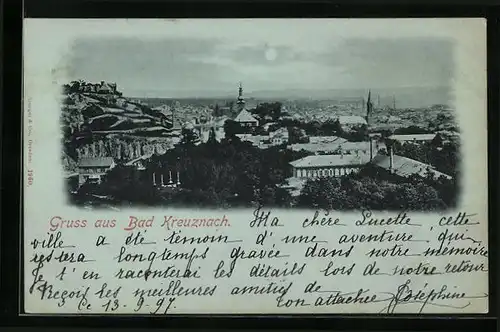 Gruss aus Bad Kreuznach.
1960.
Ma chère Lucette, cette
ville a été témoin d'une aventure qui
restera longtemps gravée dans notre mémoire
Je t'en raconterai les détails lors de notre retour
Reçois les meilleures amitiés de
ton attachée Joséphine
Ce 13-9-97.